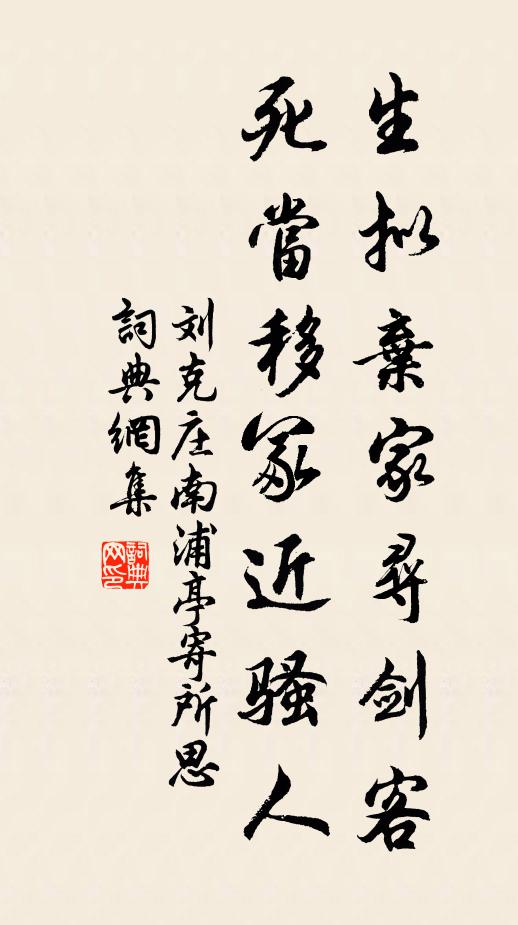 生拟棄家尋剑客
死當移冢近骚人
刘克庄南浦亭寄所思
詞典網集
詞典网印